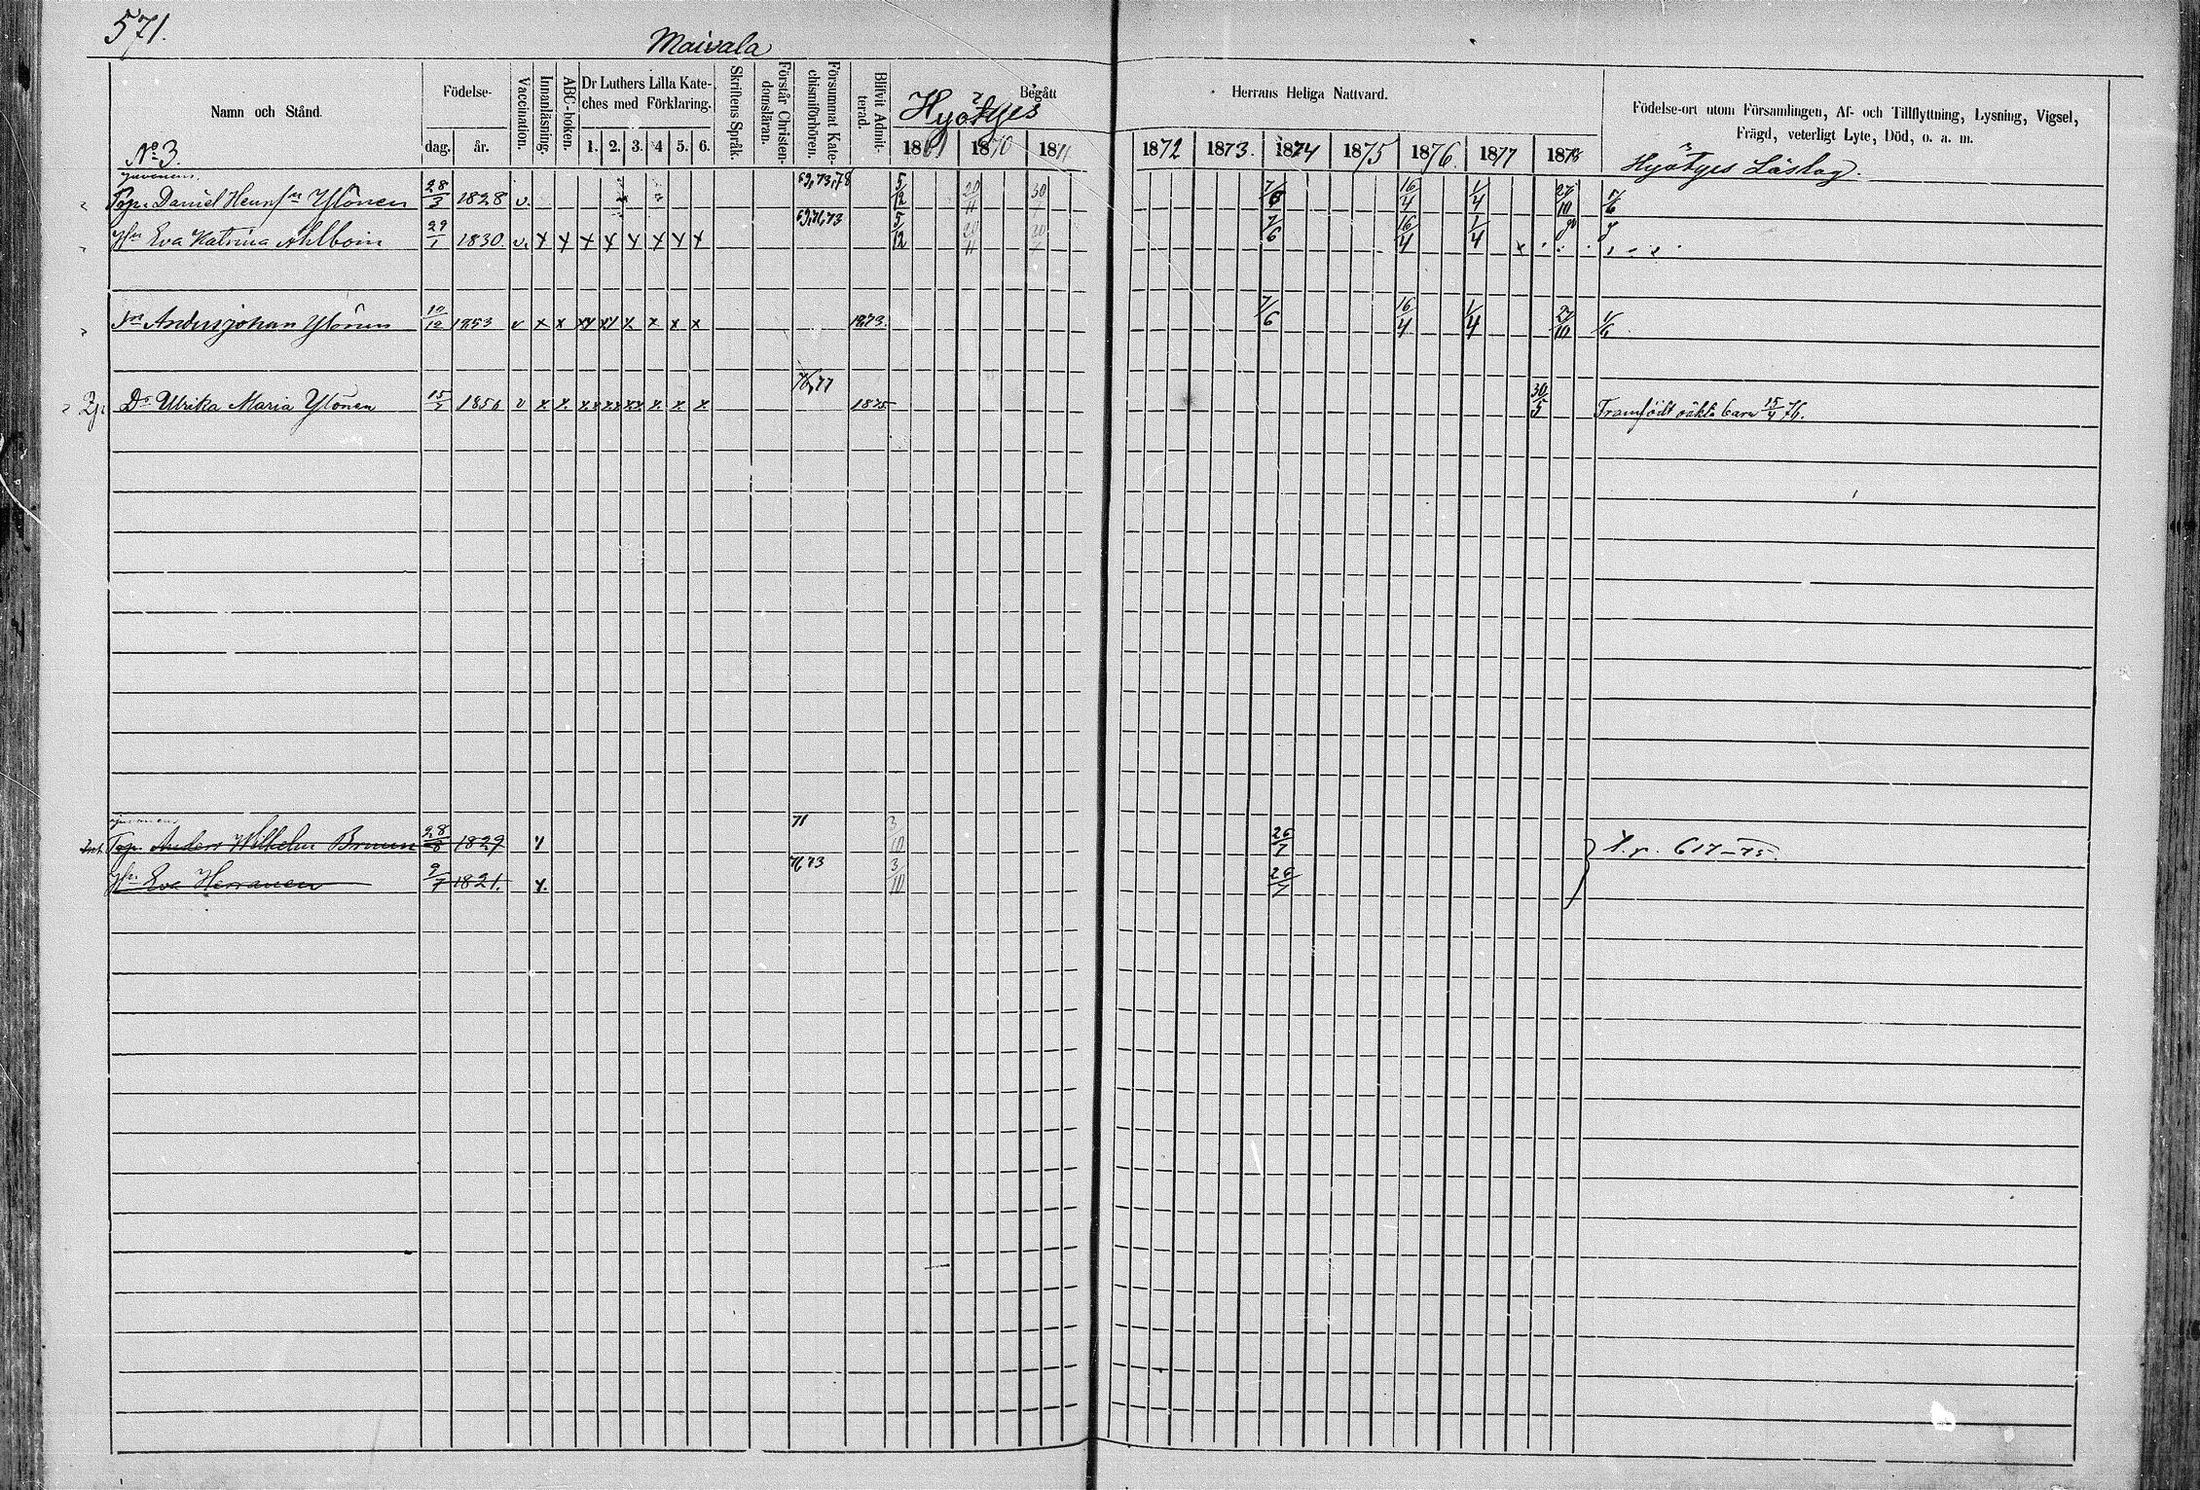 571.
Maivala
Namn och Stånd.
Födelse-
dag. år.
Vaccination.
Innanläsning.
ABC-boken.
Dr Luthers Lilla Kate-
ches med Förklaring.
1. 2. 3. 4 5. 6.
Skriftens Språk.
Förstår Christen-
domsläran.
Försummat Kate-
chismiförhören.
Blifvit Admit-
terad.
Begått
Herrans Heliga Nattvard.
1869 1870 1871 1872 1873. 1874 1875 1876. 1877 1878
Födelse-ort utom Församlingen, Af- och Tillflyttning, Lysning, Vigsel,
Frägd, veterligt Lyte, Död, o. a. m.
No 3.
Daniel Henr sn Ylönen 28/3 1828 v. 69,73,78 5/12 20/11 7/6 16/4 1/4 27/10
Hu Eva Katrina Ahlboin 29/1 1830. v. x x x x x x x x 5/12 20/11 7/6 16/4 1/4
Sn Andersjohan Ylönen 1853 v x x x x x x 1873. 7/6 16/4 1/4 27/10
Dr Ulrika Maria Ylönen 1856 v x x. x. x. x 76,77 1875 30/5 Framfödt oäkta barn 15/4 76.
Anders Wilhelm Bruun 28/8 1829 71 3/10 26/7
Hu Eva Herranen 9/7 1821. 3/10 26/7
617-75.